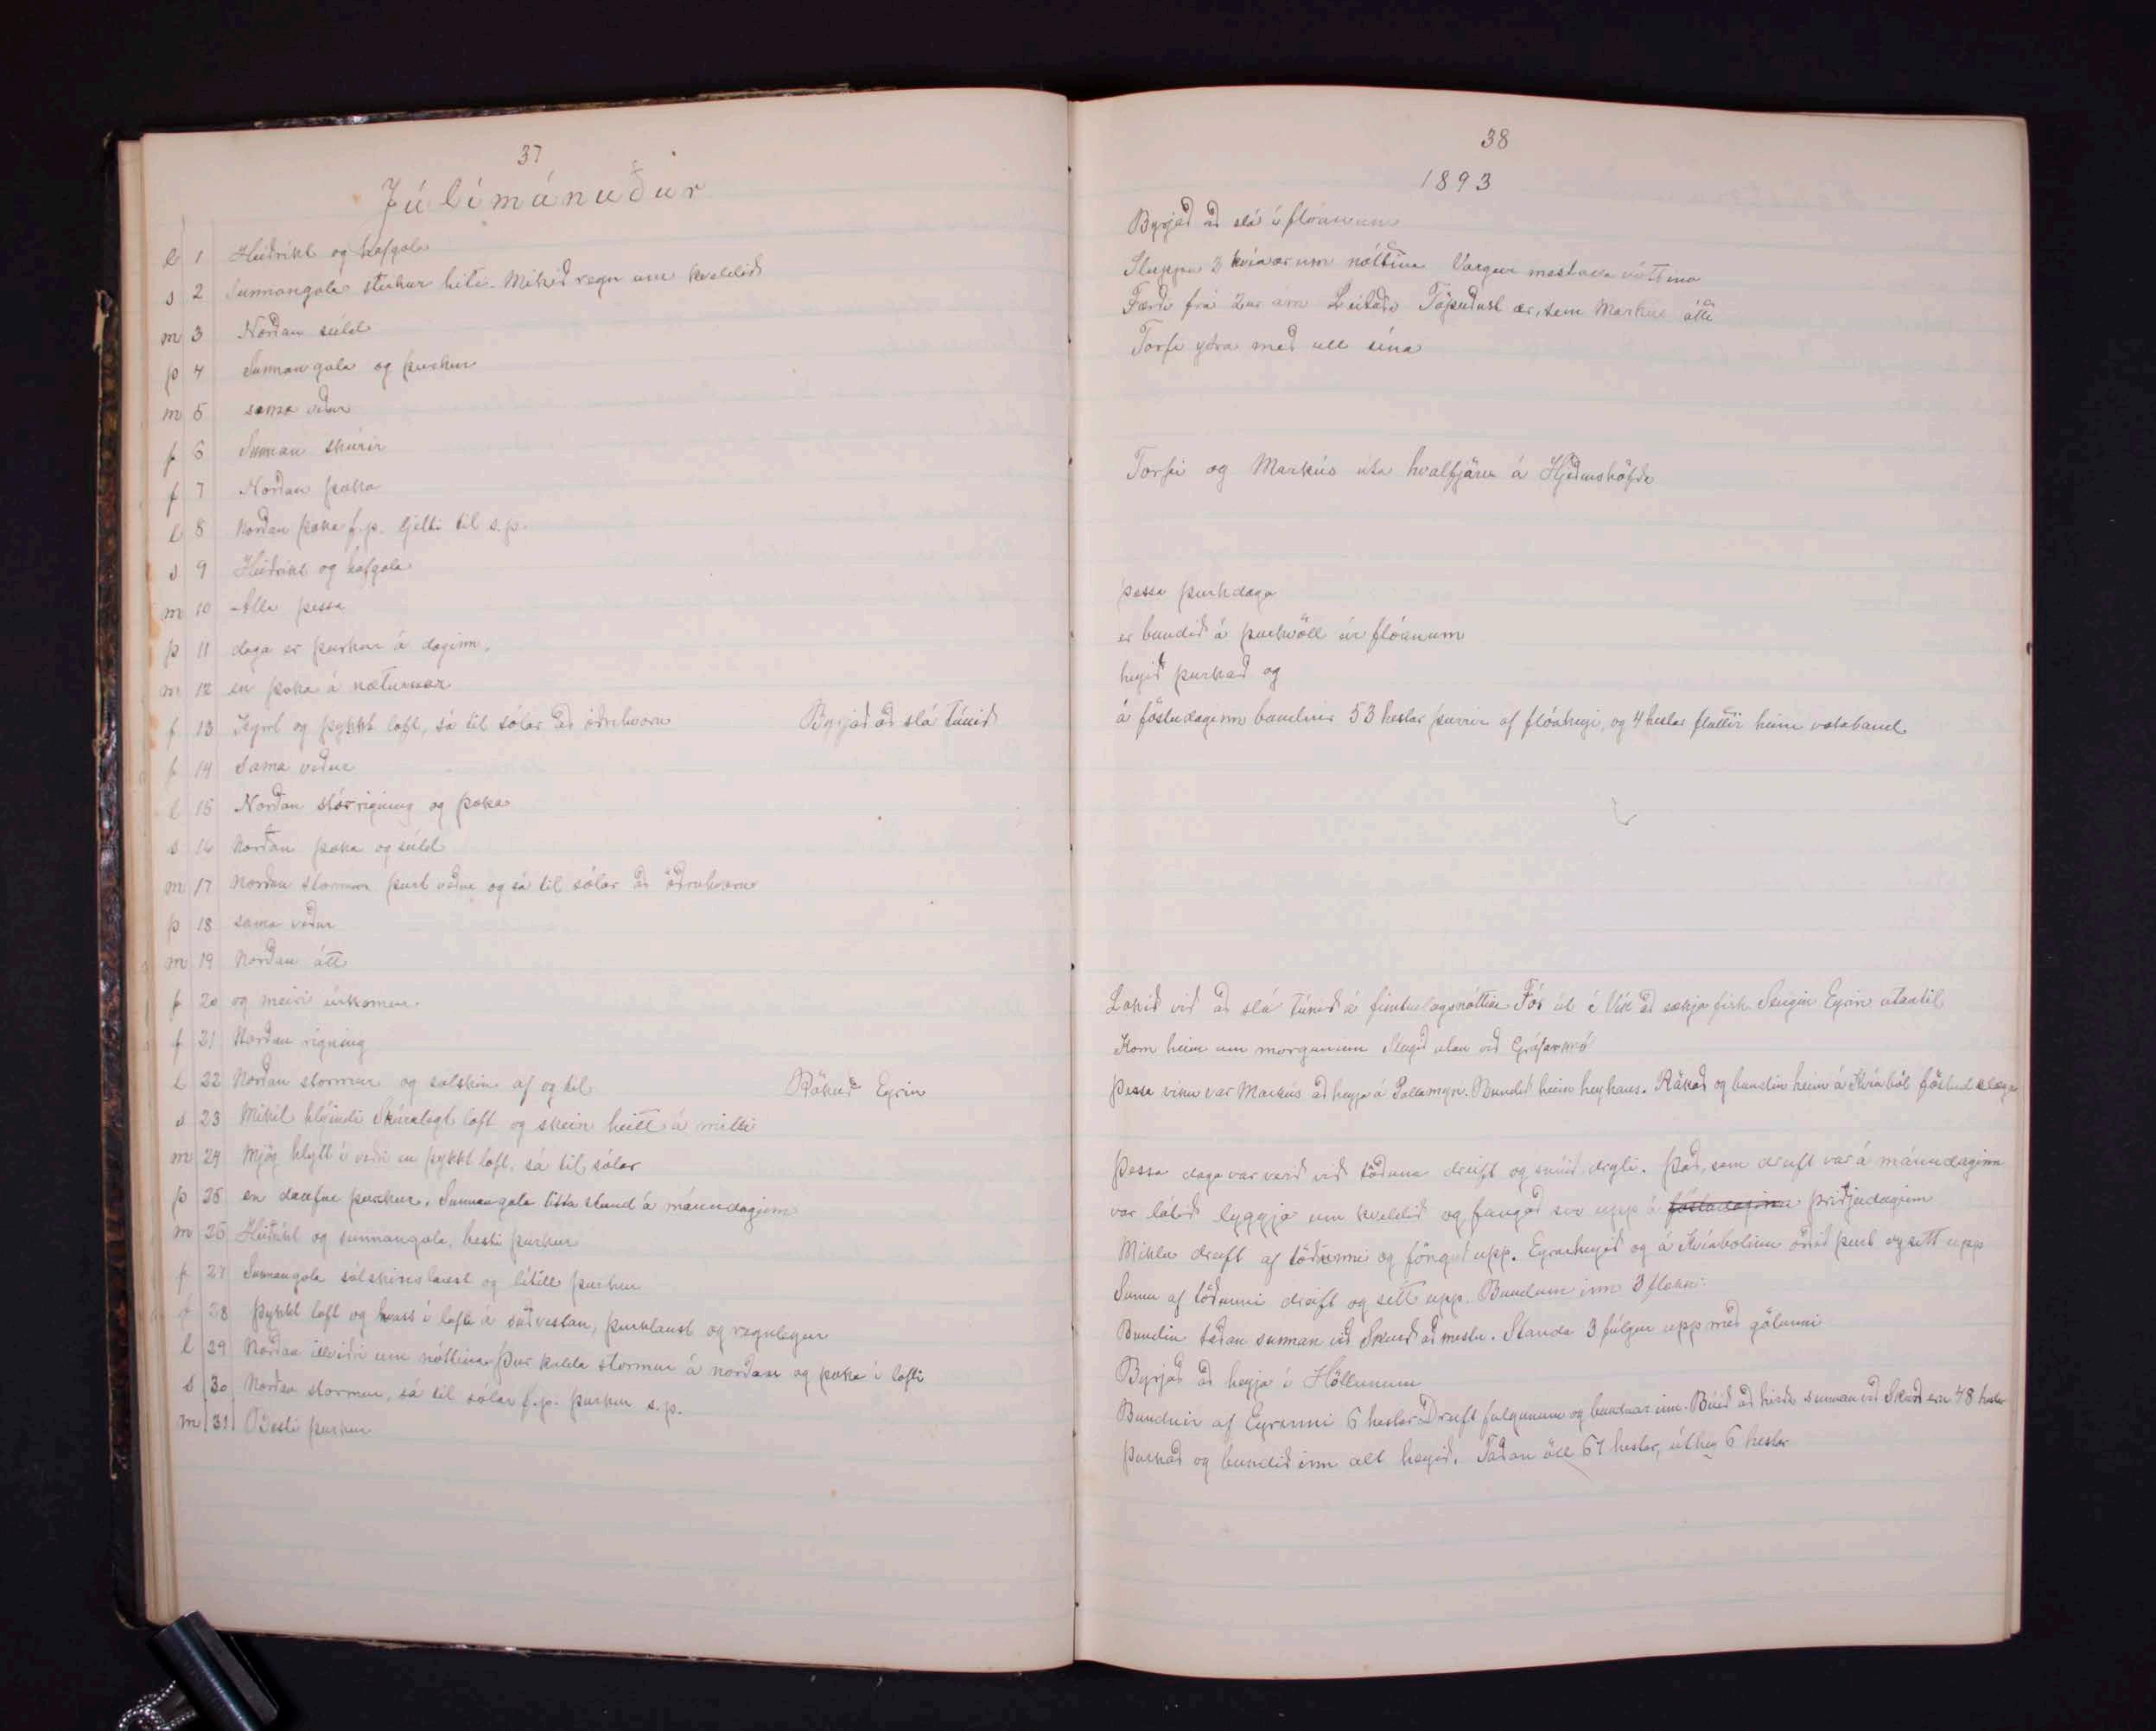 37
Júlímánuður
l 1 Heiðríkt og hafgola
s 2 Sunnangola sterkur hiti. Mikið regn um kveldið
m 3 Norðan súld
þ 4 Sunnan gola og þurkur
m 5 sama veður
f 6 Sunnan skúrir
f 7 Norðan þoka
l 8 Norðan þoka f.p. ljetti til s.p.
s 9 Heiðríkt og hafgola
m 10 Alla þessa
þ 11 daga er þurkur á daginn,
m 12 en þoka á næturnar
f 13 Kyrrt og þykkt loft, sá til sólar að öðruhvoru Byrjað að slá túnið
f 14 Sama veður
l 15 Norðan stórrigning og þoka
s 16 Norðan þoka og súld
m 17 Norðan stormur þurt veður og sá til sólar að öðruhvoru
þ 18 sama veður
m 19 Norðan átt
f 20 og meiri úrkoma.
f 21 Norðan rigning
l 22 Norðan stormur og sólskin af og til Rökuð Eyrin
s 23 Mikil hlýindi Skúralegt loft og skein heitt á milli
m 24 Mjög hlýtt í veðri en þykkt loft, sá til sólar
þ 25 en daufur þurkur. Sunnangola litla stund á mánudaginn
m 26 Heiðríkt og sunnangola, besti þurkur
f 27 Sunnangola sólskinslaust og lítill þurkur
f 28 Þykkt loft og hvass í lofti á suðvestan, þurklaust og regnlegur
l 29 Norðan illviðri um nóttina. Þur kalda stormur á norðan og þoka í lofti
s 30 Norðan stormur, sá til sólar f.p. þurkur s.p.
m 31 Besti þurkur
38
1893
Byrjað að slá í flóanum
Sluppu 3 kvíaær um nóttina Vargur
Færði frá 2ur ám Leitaði Töpuðust ær, sem Markús átti
Torfi ytra með ull sína
Torfi og Markús úta hvalfjöru á Hjeðinshöfða
þessa þurkdaga
er bundið á þurkvöll úr flóanum
heyið þurkað og
á föstudaginn bundnir 53 hestar þurrir af flóaheyi, og 4 hestar fluttir heim votaband
Lokið við að slá túnið á fimtudagsnóttina Fór út í Vík að sækja fisk Slegin Eyrin utantil
Kom heim um morguninn Slegið utan við
Þessa viku var Markús að heyja á Pallamýri. Bundið heim heyhans. Rakað og bundin heim á Kvíaból föstud slægja
Þessa daga var verið við töðuna dreift og snúið drýli. Það, sem dreift var á mánudaginn
var látið lyggja um kveldið og fangað svo upp á föstudaginn þriðjudaginn
Miklu dreift af töðunni og föngað upp. Eyrarheyið og á Kvíabolinu orðið þurt og sett upp
Sumu af töðunni dreift og sett upp. Bundum inn 3 flekki
Bundin taðan sunnan við Skurð að mestu. Standa 3 fúlgur upp með götunni
Byrjað að heyja í Höllunum
Bundnir af Eyrinni 6 hestar Dreift fúlgunum og bundnar inn. Búið að hirða sunnan við Skurð eru 48 hestar
Þurkað og bundið inn alt heyið. Taðan öll 67 hestar, úthey 6 hestar